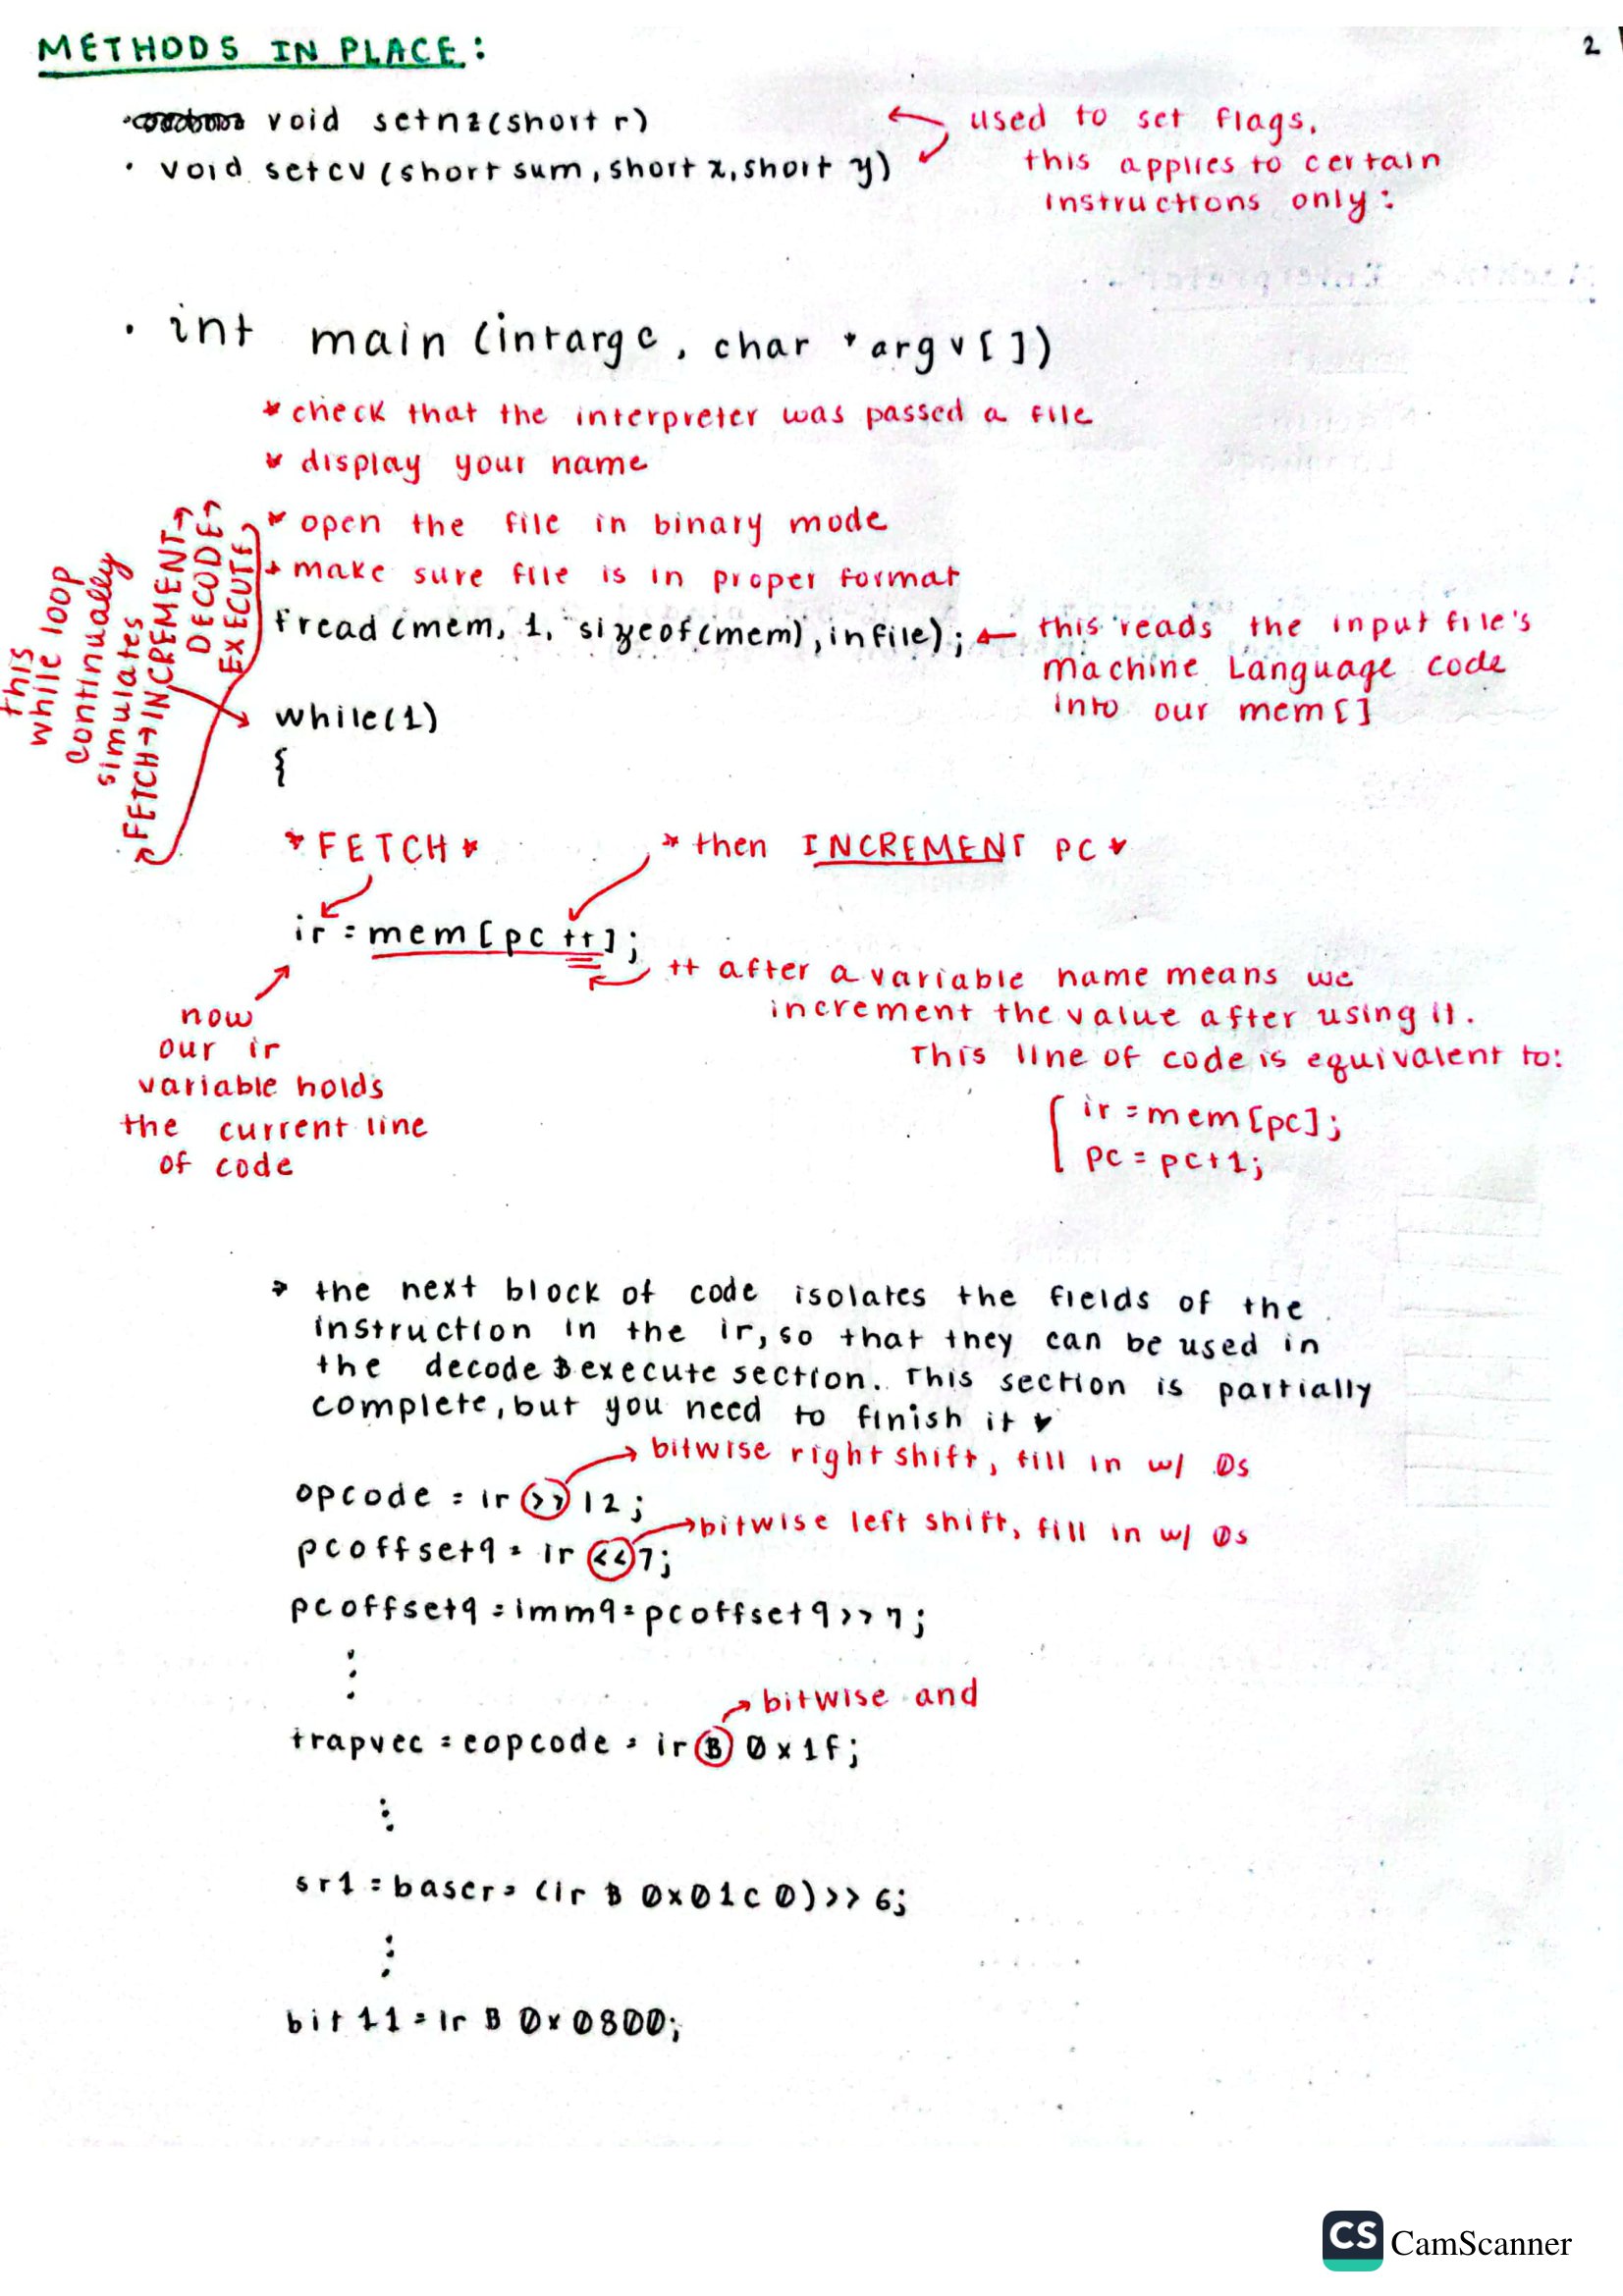 METHODS IN PLACE:
2
void setnz(short r)
• void setcv (short sum, short x, short y)
used to set flags,
this applies to certain
instructions only:
• int main (int argc, char *argv[])
* check that the interpreter was passed a file
* display your name
* open the file in binary mode
* make sure file is in proper format
fread (mem, 1, sizeof(mem), infile);
this reads the input file's
machine language code
into our mem[]
this
while loop
continually
simulates
FETCH→INCREMENT→
DECODE→
EXECUTE
while(1)
{
*FETCH*
* then INCREMENT PC *
ir = mem[pc ++];
++ after a variable name means we
increment the value after using it.
This line of code is equivalent to:
ir = mem[pc];
pc = pc+1;
now
our ir
variable holds
the current line
of code
* the next block of code isolates the fields of the
instruction in the ir, so that they can be used in
the decode & execute section. This section is partially
complete, but you need to finish it *
bitwise right shift, fill in w/ 0s
opcode = ir >> 12;
bitwise left shift, fill in w/ 0s
pcoffset9 = ir <<7;
pcoffset9 = imm9 = pcoffset9 >> 7;
⋮
bitwise and
trapvec = eopcode = ir & 0x1f;
⋮
sr1 = baser = (ir & 0x01c0) >> 6;
⋮
bit11 = ir & 0x0800;
CS CamScanner